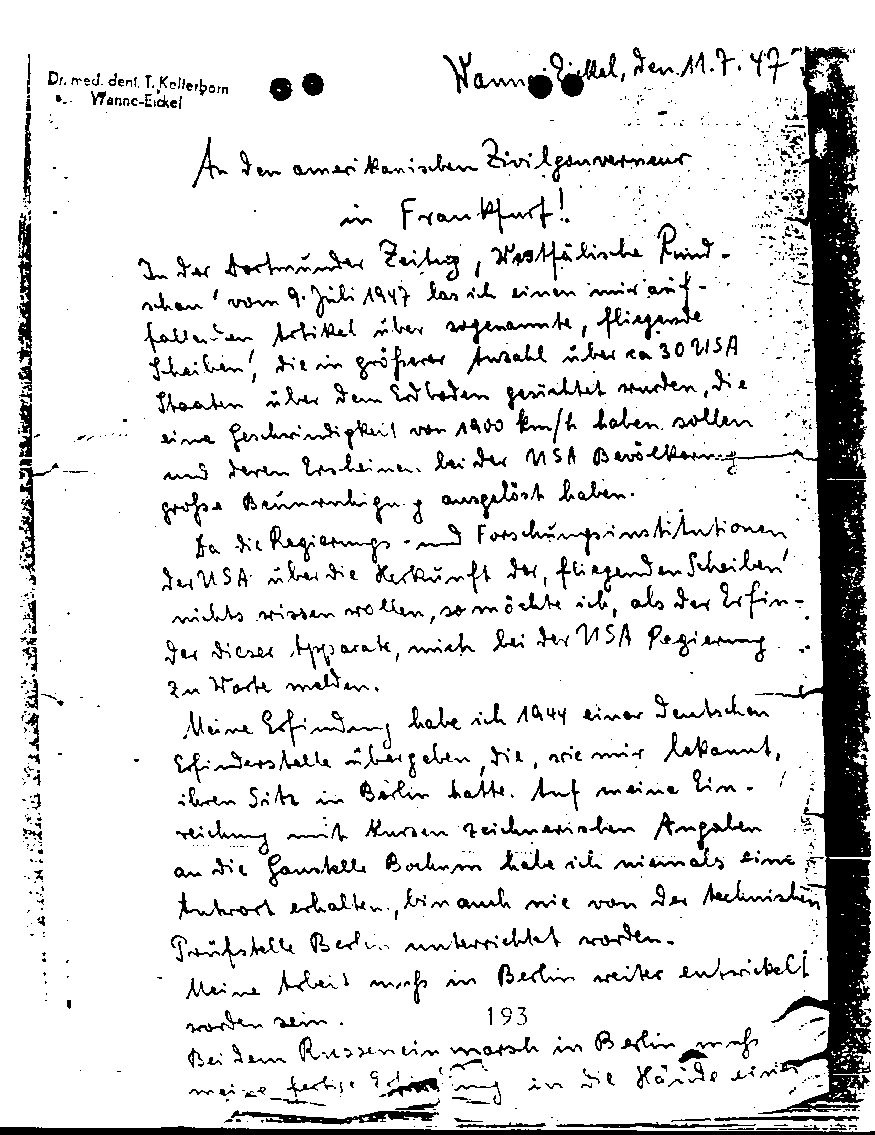 Dr. med. dent. T. Kelterborn
Wanne-Eickel
Wanne-Eickel, den 11.7.47
An den amerikanischen Zivilgouverneur
in Frankfurt!
In der Dortmunder Zeitung, 'Westfälische Rund-
schau' vom 9. Juli 1947 las ich einen mir auf-
fallenden Artikel über sogenannte, 'fliegende
Scheiben', die in größerer Anzahl über ca 30 USA
Staaten über dem Erdboden gesichtet wurden, die
eine Geschwindigkeit von 1900 km/h haben sollen
und deren Erscheinen bei der USA Bevölkerung
große Beunruhigung ausgelöst haben.
Da die Regierungs- und Forschungsinstitutionen
der USA über die Herkunft der, 'fliegenden Scheiben'
nichts wissen wollen, so möchte ich, als der Erfin-
der dieser Apparate, mich bei der USA Regierung
zu Worte melden.
Meine Erfindung habe ich 1944 einer deutschen
Erfinderstelle übergeben, die, wie mir bekannt,
ihren Sitz in Berlin hatte. Auf meine Ein-
reichung mit kurzen zeichnerischen Angaben
an die Gaustelle Bochum habe ich niemals eine
Antwort erhalten, bin auch nie von der technischen
Prüfstelle Berlin unterrichtet worden.
Meine Arbeit muß in Berlin weiter entwickelt
worden sein.
193
Bei dem Russeneinmarsch in Berlin muß
meine fertige Erfindung in die Hände einer